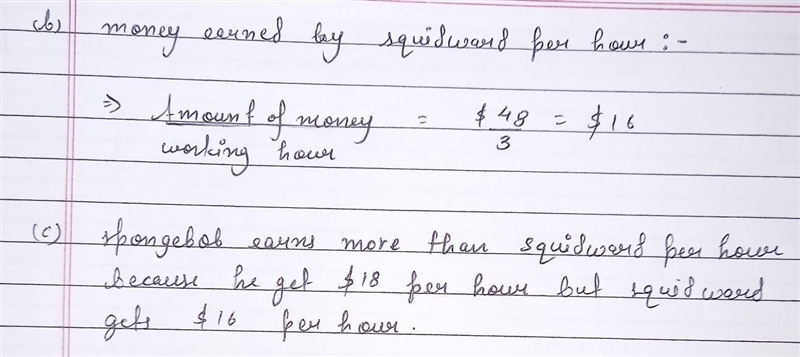 (b) money earned by squidward per hour :-
⇒ Amount of money / working hour = $ 48 / 3 = $ 16
(c) spongebob earns more than squidward per hour
because he get $ 18 per hour but squidward
gets $ 16 per hour.